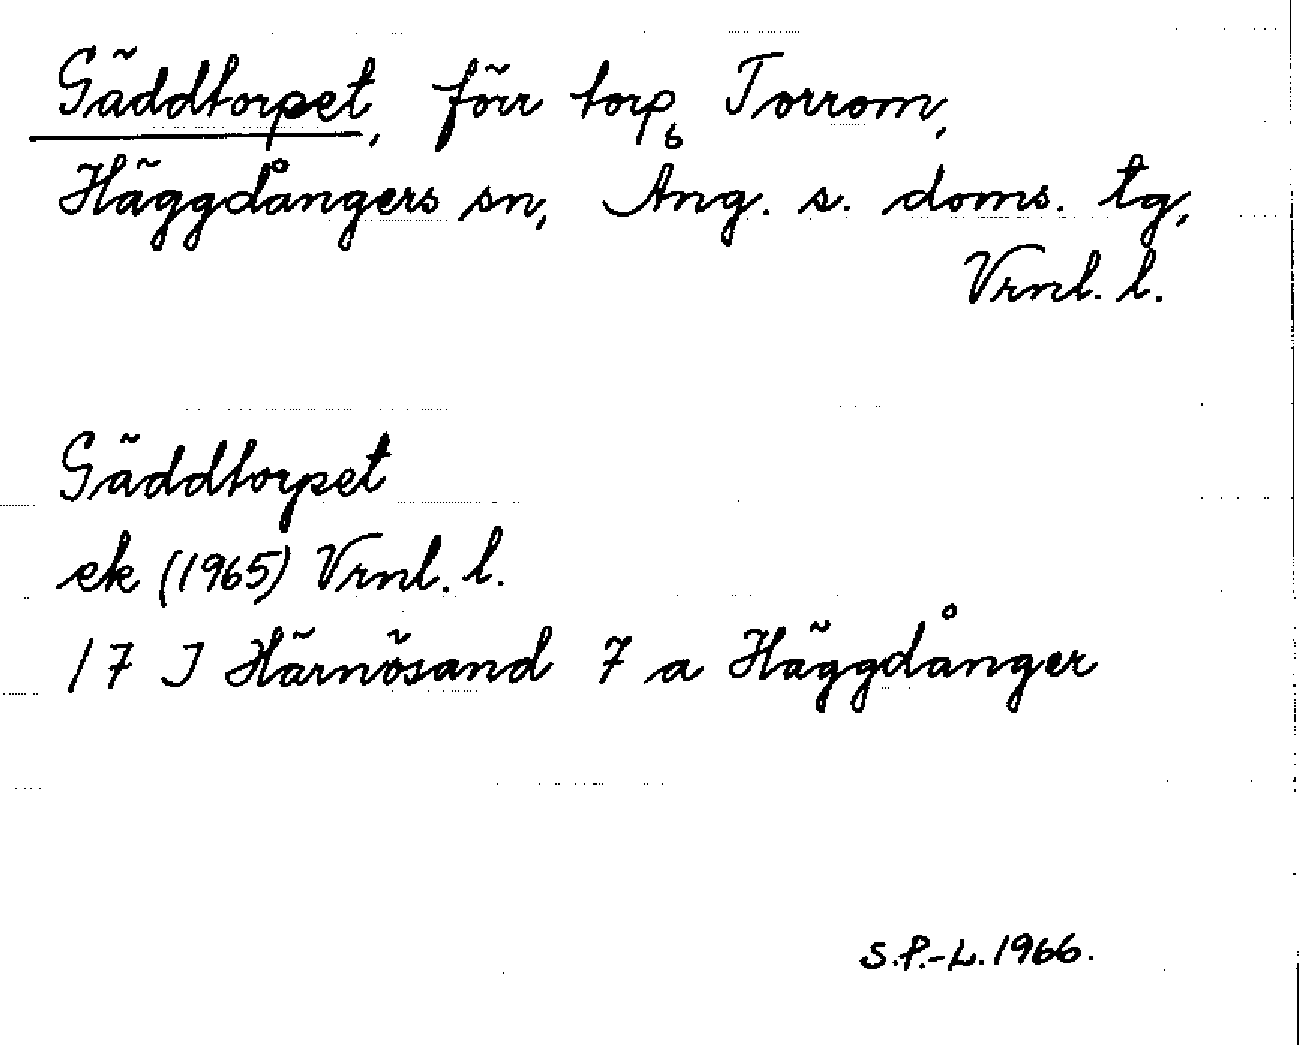 Gäddtorpet, förr torp, Torrom,
Häggdångers sn, Ång. s. doms. tg,
Vrnl. l.
Gäddtorpet
ek (1965) Vrnl. l.
17 I Härnösand 7 a Häggdånger
S.P.-L. 1966.